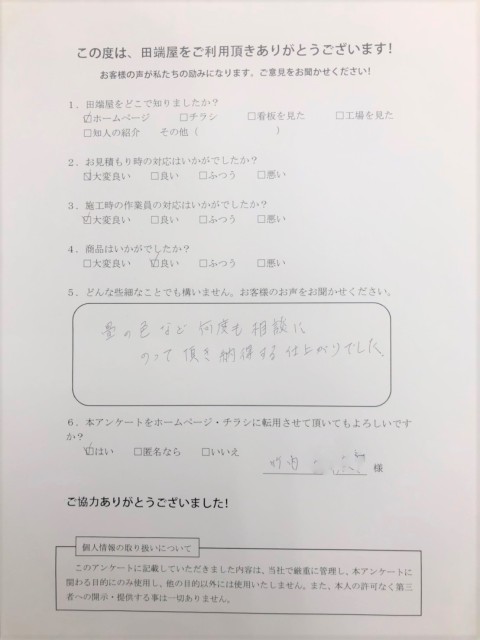 この度は、田端屋をご利用頂きありがとうございます！
お客様の声が私たちの励みになります。ご意見をお聞かせください！
1．田端屋をどこで知りましたか？
☑ホームページ □チラシ □看板を見た □工場を見た
□知人の紹介 その他（ ）
2．お見積もり時の対応はいかがでしたか？
☑大変良い □良い □ふつう □悪い
3．施工時の作業員の対応はいかがでしたか？
☑大変良い □良い □ふつう □悪い
4．商品はいかがでしたか？
□大変良い ☑良い □ふつう □悪い
5．どんな些細なことでも構いません。お客様のお声をお聞かせください。
畳の色など何度も相談に
のって頂き納得する仕上がりでした。
6．本アンケートをホームページ・チラシに転用させて頂いてもよろしいです
か？
☑はい □匿名なら □いいえ
竹内 様
ご協力ありがとうございました！
個人情報の取り扱いについて
このアンケートに記載していただきました内容は、当社で厳重に管理し、本アンケートに
関わる目的にのみ使用し、他の目的以外には使用いたしません。また、本人の許可なく第三
者への開示・提供する事は一切ありません。